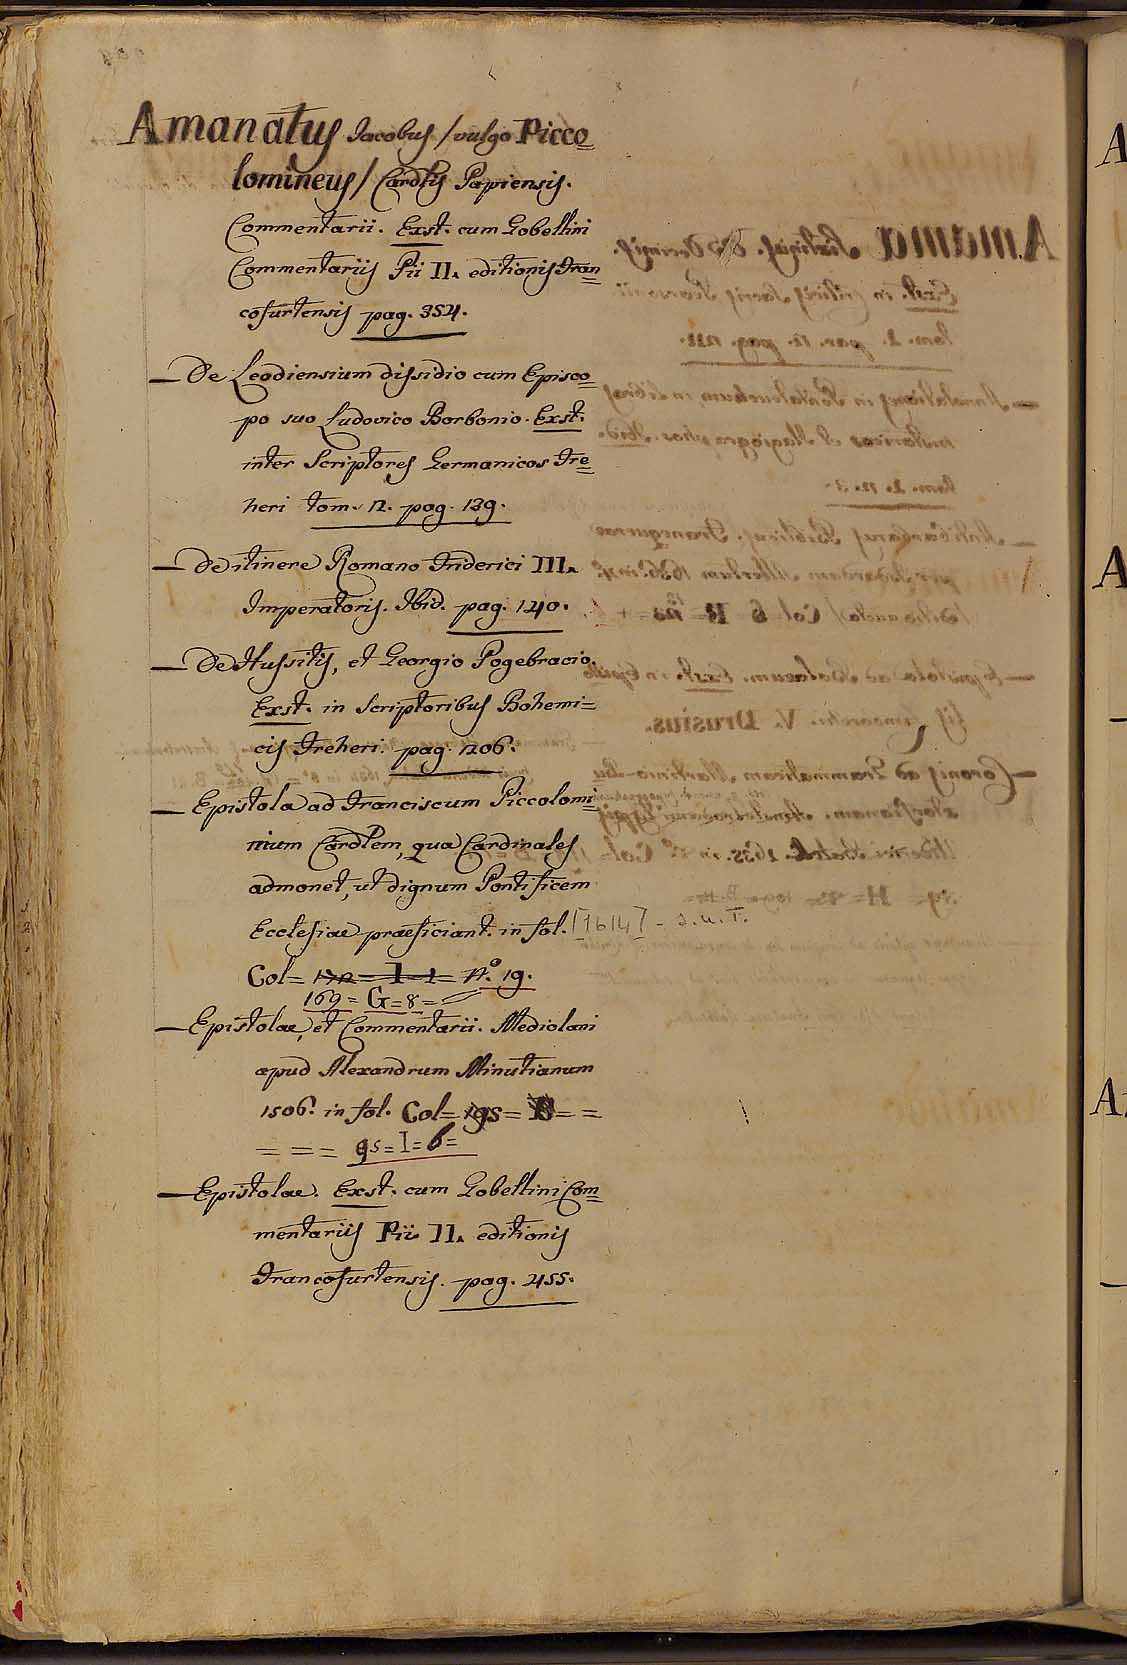 Amanatus Jacobus /vulgo Picco=
lomineus/ Cardlis Papiensis.
Commentarii. Exst. cum Gobellini
Commentariis Pii II. editionis Fran=
cofurtensis pag. 354.
— De Leodiensium dissidio cum Episco=
po suo Ludovico Borbonio. Exst.
inter Scriptores Germanicos Fre=
heri tom. 2. pag. 139.
— De itinere Romano Friderici III.
Imperatoris. Ibid. pag. 140.
— De Hussitis, et Georgio Pogebracio.
Exst. in Scriptoribus Bohemi=
cis Freheri. pag. 206.
— Epistola ad Franciscum Piccolomi=
nium Cardlem, qua Cardinales
admonet, ut dignum Pontificem
Ecclesiae praeficiant. in fol. [1614] - s.u.T.
Col= = I=1= N.º 19.
169= G=8=
— Epistolae, et Commentarii. Mediolani
apud Alexandrum Minutianum
1506. in fol. Col= 195= B= =
= = = 95=I=6=
— Epistolae. Exst. cum Gobellini Com=
mentariis Pii II. editionis
Francofurtensis. pag. 455.